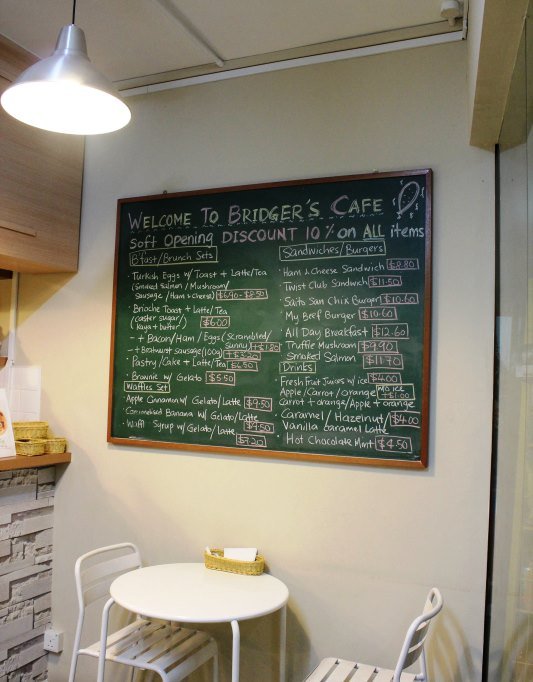 WELCOME TO BRIDGER'S CAFE
soft opening DISCOUNT 10% on ALL items
B'fast/Brunch Sets
• Turkish Eggs w/ Toast + Latte/Tea
(Smoked Salmon / Mushroom/
Sausage / Ham & Cheese) $6.90 - $8.50
• Brioche Toast + Latte/Tea
(caster sugar/
kaya + butter) $6.00
- + Bacon/Ham/Eggs (scrambled/
sunny) + $1.20
- + Bratwurst sausage (100g) + $3.20
• Pastry/Cake + Latte/Tea $6.50
• Brownie w/ Gelato $5.50
Waffles Set
• Apple Cinnamon w/ Gelato/Latte $9.50
• Caramelised Banana w/ Gelato/Latte
$9.50
• Waffl Syrup w/ Gelato/Latte
$7.20
Sandwiches/Burgers
• Ham & Cheese Sandwich $8.80
• Twist Club Sandwich $11.50
• Saito San Chix Burger $10.60
• My Beef Burger $10.60
• All Day Breakfast $12.60
• Truffle Mushroom $9.90
• Smoked Salmon $11.70
Drinks
• Fresh Fruit Juices w/ ice $4.00
Apple/Carrot/Orange w/o ICE + $1.00
Carrot + orange/Apple + orange
• Caramel/Hazelnut/ $4.00
Vanilla Caramel Latte
• Hot Chocolate Mint $4.50